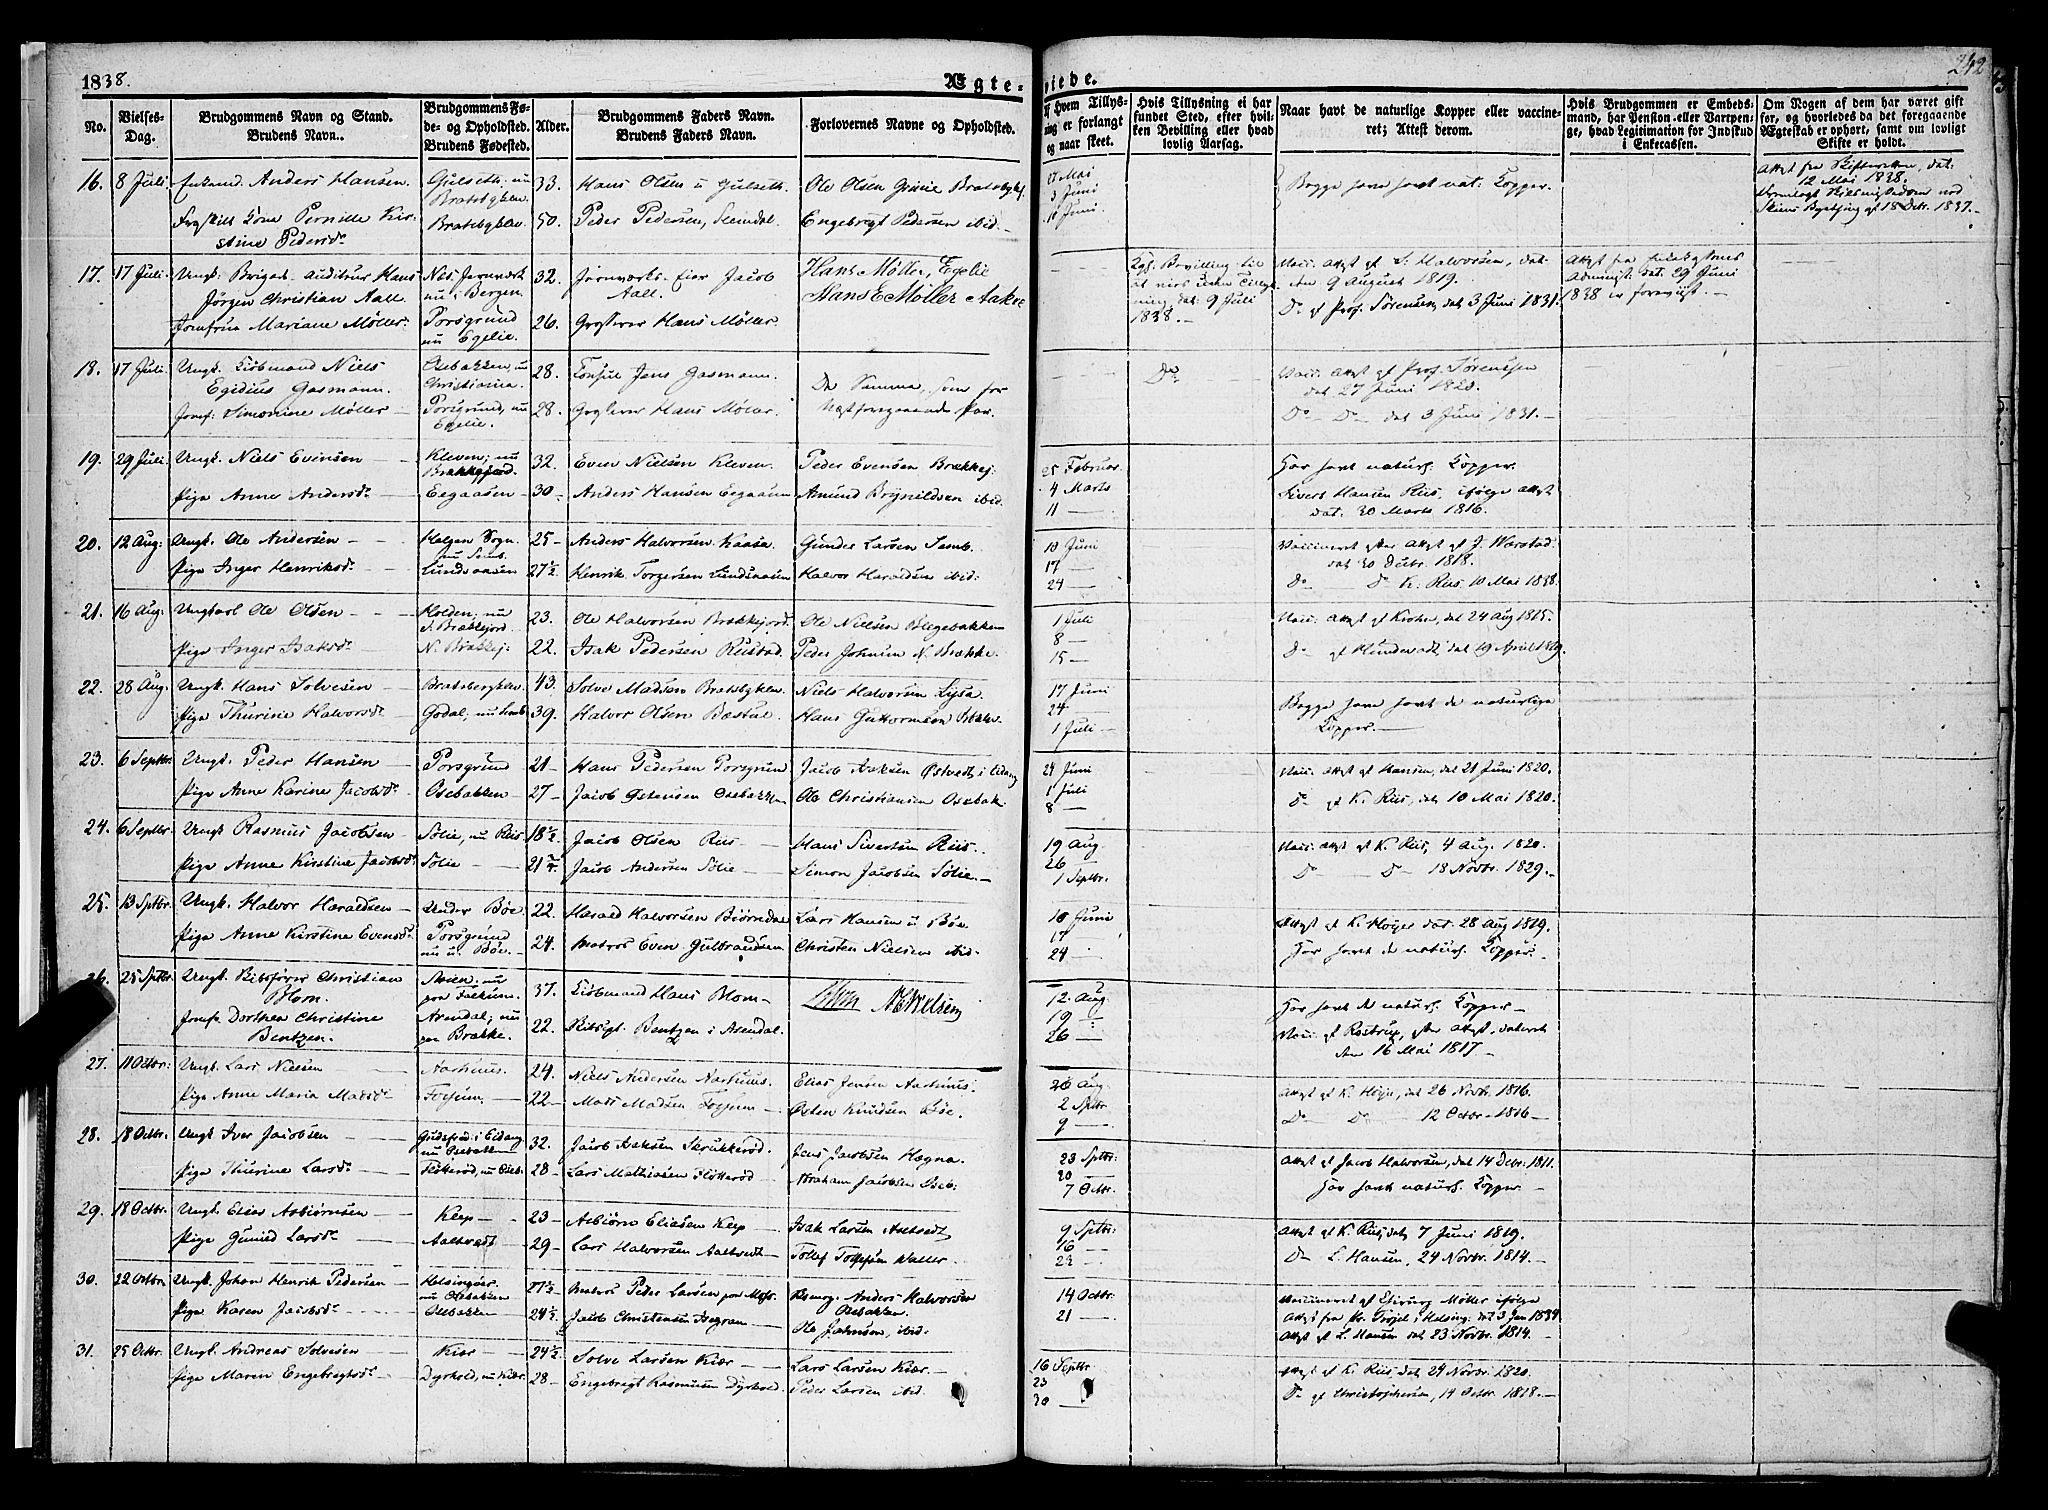 1838.
Ægte-
viede.
242
No.
Vielses-
Dag.
Brudgommens Navn og Stand.
Brudens Navn.
Brudgommens Fø-
de- og Opholdsted.
Brudens Fødested.
Alder.
Brudgommens Faders Navn.
Brudens Faders Navn.
Forlovernes Navne og Opholdsted.
Af Hvem Tillys-
ning er forlangt
og naar skeet.
Hvis Tillysning ei har
fundet Sted, efter hvil-
ken Bevilling eller hvad
lovlig Aarsag.
Naar havt de naturlige Kopper eller vaccine-
ret; Attest derom.
Hvis Brudgommen er Embeds-
mand, har Pension eller Vartpen-
ge, hvad Legitimation for Indskud
i Enkecassen.
Om Nogen af dem har været gift
for, og hvorledes da det foregaaende
Ægteskab er ophørt, samt om lovligt
Skifte er holdt.
16. 8 Juli Enkemd. Anders Hansen. Gulseth: nu 33. Hans Olsen u Gulseth. Ole Olsen Grinie Bratsbgkl. Mai Begge have havt nat: Kopper. Attest fra Skifteretten, dat.
Bratsbgklev. 3 Juni 12 Mai 1838.
Fraskilt Kone Pernille Kir- Bratsbgklev. 50. Peder Pedersen, Slemdal Engebregt Pedersen ibid. 10 Juni.
stine Pedersdr. Skiens Bything af 18 Octr. 1837.
17. 17 Juli Ungk: Brigad. Auditeur Hans Nes Jernværk 32. Jernværks-Eier Jacob Hans Møller, Egelie Kgl. Bevilling til Vacc. Attest af S. Halvorsen, dat. Attest fra Enkekassens
Jörgen Christian Aall. nu i Bergen. Aall. Hans E Møller Aakre at vies uden Tillys- den 9 August 1819. Administ. dat. 29 Juni
Jomfrue Mariane Møller. Porsgrund 26. Grosserer Hans Møller. ning, dat: 9 Juli Do. af Prof. Sörensen, dat 3 Juni 1831. 1838 er foreviist.
nu Egelie. 1838.
18. 17 Juli Ungk. Kiöbmand Niels Osebakken, nu 28. Konsul Jens Gasmann. De Samme, som for Do. Vacc. Attest af Prof. Sörenssen
Egidius Gasmann. Christiania. næstforegaaende Par. dat 27 Juni 1820.
Jomf: Simonine Møller Porsgrund, nu 28. Grosserer Hans Møller. Do. Do. dat 3 Juni 1831.
Egelie.
19. 29 Juli. Ungk. Niels Evensen Kleven; nu 32. Even Nielsen Kleven. Peder Evensen Brækkej: 25 Februar. Har havt naturl. Kopper.
Brækkejord.
Pige Anne Andersdr. Eegaasen 30 Anders Hansen Eegaasen Amund Brynildsen ibid. 4 Marts Sivert Hansen Riis, ifølge Attest
11 dat: 30 Marts 1816.
20. 12 Aug: Ungk. Ole Andersen Kolgen Sogn. 25 Anders Halvorsen Kaasa. Gunder Larsen Semb. 10 Juni Vaccineret efter Attest af J. Warstad.
nu Semb. 17 dat 30 Decbr. 1818.
Pige Inger Henriksdr. Lundsaasen 27½ Henrik Torgersen Lundsaasen Halvor Haraldsen ibid: 24 Do. Do. K. Riis 10 Mai 1838.
21. 16 Aug: Ungkarl Ole Olsen Holden; nu 23. Ole Halvorsen Brækkejord. Ole Nielsen Blegebakken 1 Juli Vacc. Attest af Krohn, dat 24 Aug 1815.
S. Brækkejord. 8
Pige Inger Isaksdr. N. Brækkej: 22. Isak Pedersen Rustad. Peder Johnsen N. Brække. 15 Do. dat 19 April 1819.
22. 28 Aug. Ungk. Hans Solvesen Bratsbergklev. 43. Solve Madsen Bratsbgklev. Niels Halvorsen Lysa. 17 Juni Begge have havt de naturlige
24
Pige Thurine Halvorsdr. Godal; nu Semb 39. Halvor Olsen Bæstul. Hans Guttormsen 1 Juli Kopper.
23. 6 Septbr. Ungk. Peder Hansen Porsgrund 21 Hans Pedersen Porsgrund Jacob Isaksen Østvedt i Eidang 24 Juni Vacc. Attest af Hansen, dat 21 Juni 1820.
1 Juli
Pige Anne Karine Jacobsdr. Osebakken 27 Jacob Osebakken Ole Christiansen Osebak. 8 Do. af K. Riis, dat 10 Mai 1820.
24. 6 Septbr. Ungk Rasmus Jacobsen Sølie, nu Riis 18½ Jacob Olsen Riis Hans Sivertsen Riis. 19 Aug. Vacc. Attest af K. Riis, 4 Aug. 1820.
26
Pige Anne Kirstine Jacobsdr. Sølie 21 Jacob Andersen Sølie Simon Jacobsen Sølie. 1 Septbr. Do. Do. 18 Novbr. 1829.
25. 13 Sptbr. Ungk. Halvor Haraldsen Under Böe. 22. Harald Halvorsen Biörndal Lars Hansen u Böe. 10 Juni Attest af K. Höyer dat. 28 Aug 1819.
Porsgrund 17
Pige Anne Kirstine Evensdr. nu u. Böe. 24. Matros Even Gulbrandsen Christen Nielsen ibid. 24 Har havt de naturl. Kopper.
26. 25 Sptbr. Ungk. Christian Skien; nu 37. Kiöbmand Hans Blom 12. Aug. Har havt de naturl. Kopper
Blom. paa Falkum. 19
Jomfr. Dorthea Christine Arendal; nu 22. Bentzen i Arendal. 26 Vacc. af Rostrup, efter Attest, dateret
Bentzen. paa Brække. den 16 Mai 1817
27. 11 Octbr: Ungk. Lars Nielsen Aarhuus. 24. Niels Andersen Aarhuus. Elias Jensen Aarhuus. 26 Aug. Attest af K. Höyer, dat 26 Novbr. 1816.
2 Sptbr.
Pige Anne Maria Madsdr. Fossum. 22 Mads Madsen Fossum Østen Knudsen Böe. 9 Do. Do. 12 Octbr 1816
28. 18 Octbr. Ungk Iver Jacobsen i Eidang 32. Jacob Isaksen Skrukkeröd. Jens Jacobsen Hægna. 23 Sptbr: Attest af Jacob Halvorsen, dat 14 Decbr. 1811.
nu Osebakken 30
Pige Thurine Larsdr. Flötteröd, nu Oseb. 28 Lars Mathiasen Flötteröd Abraham Jacobsen Oseb: 7 Octbr. Har havt naturl. Kopper
29. 18 Octbr. Ungk. Elias Asbiörnsen Keip 23 Asbiörn Eliasen Keip Isak Larsen Aaltvedt 9 Sptbr: Attest af K. Riis, dat 7 Juni 1819.
16
Pige Gunild Larsdr. Aaltvedt 29 Lars Halvorsen Aaltvedt Tollef Tollefsen Valler. 23 Do. L. Hansen, 24 Novbr. 1814.
30. 22 Octbr. Ungk. Johan Henrik Pedersen Helsingöer 27½ Matros Peder Larsen Anders Halvorsen 14 Octbr. Vaccineret af Chirurg Møller ifølge
nu Osebakken Osebakken.
Pige Karen Jacobsdr. Osebakken 24½ Jacob Christensen Ole Johnsen, ibid. 21 Attest fra i Helsing: dat 3 Jan 1834
Attest af L. Hansen dat 23 Novbr. 1814.
31. 25 Octbr. Ungk. Andreas Solvesen Kiær 24½ Solve Larsen Kiær Lars Larsen Kiær 16 Septbr Attest af K. Riis dat 24 Novbr. 1820.
23
Pige Maren Engebregtsdr. Dyrkold, nu Kiær 28 Engebregt Rasmussen Dyrkold. Peder Larsen ibid. 30 Do. af Christophersen, 14 Octbr. 1818.